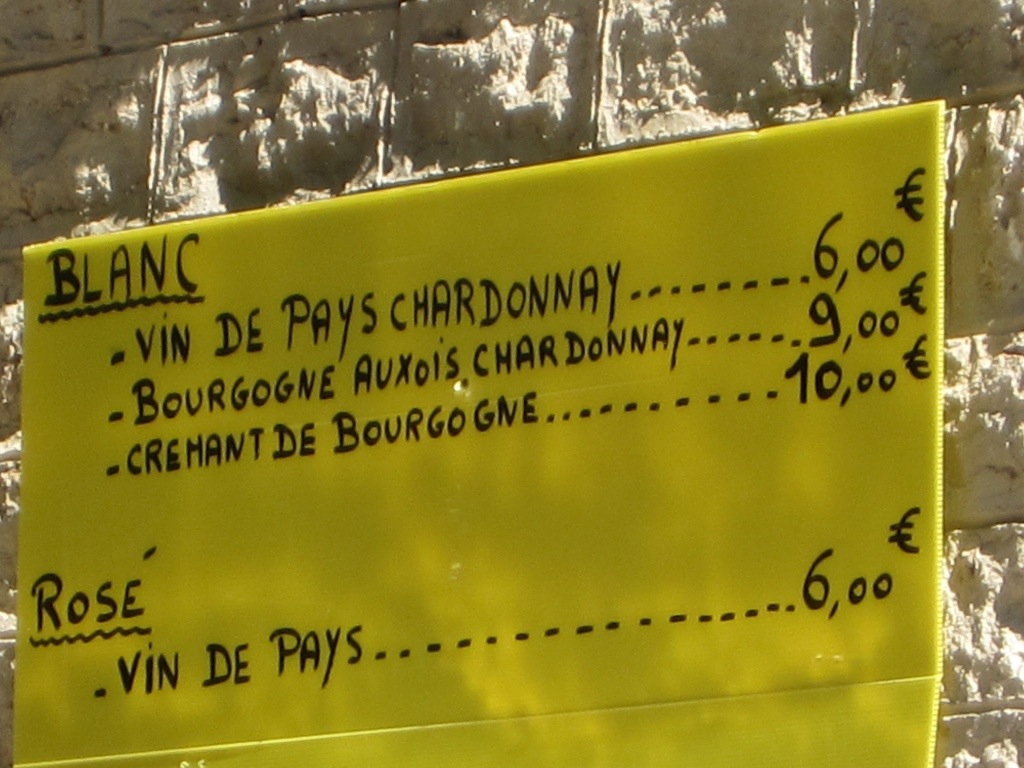 BLANC
- VIN DE PAYS CHARDONNAY.........6,00€
- BOURGOGNE AUXOIS CHARDONNAY......9,00€
- CREMANT DE BOURGOGNE..........10,00€
ROSÉ
- VIN DE PAYS.................6,00€